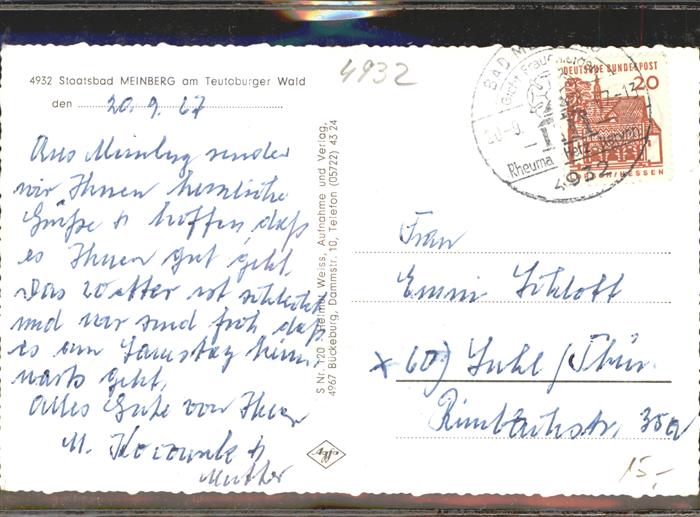 4932 Staatsbad MEINBERG am Teutoburger Wald
4932
den 20.9.67
Aus Meinberg senden
wir Ihnen herzliche
Grüße & hoffen, daß
es Ihnen gut geht.
Das Wetter ist schlecht
und wir sind froh, daß
es am Samstag heim-
wärts geht.
Alles Gute von Ihrer
M. &
Mutter
S Nr. 120 Helmut Weiss, Aufnahme und Verlag,
4967 Bückeburg, Dammstr. 10, Telefon (05722) 43 24
BAD MEINBERG
Gicht Frauenleiden
20.-9.
Rheuma Herz
4932
DEUTSCHE BUNDESPOST
20
HESSEN
Frau
Emmi Schloff
x 60) Suhl / Thür.
Rimbachstr. 35a
15,-